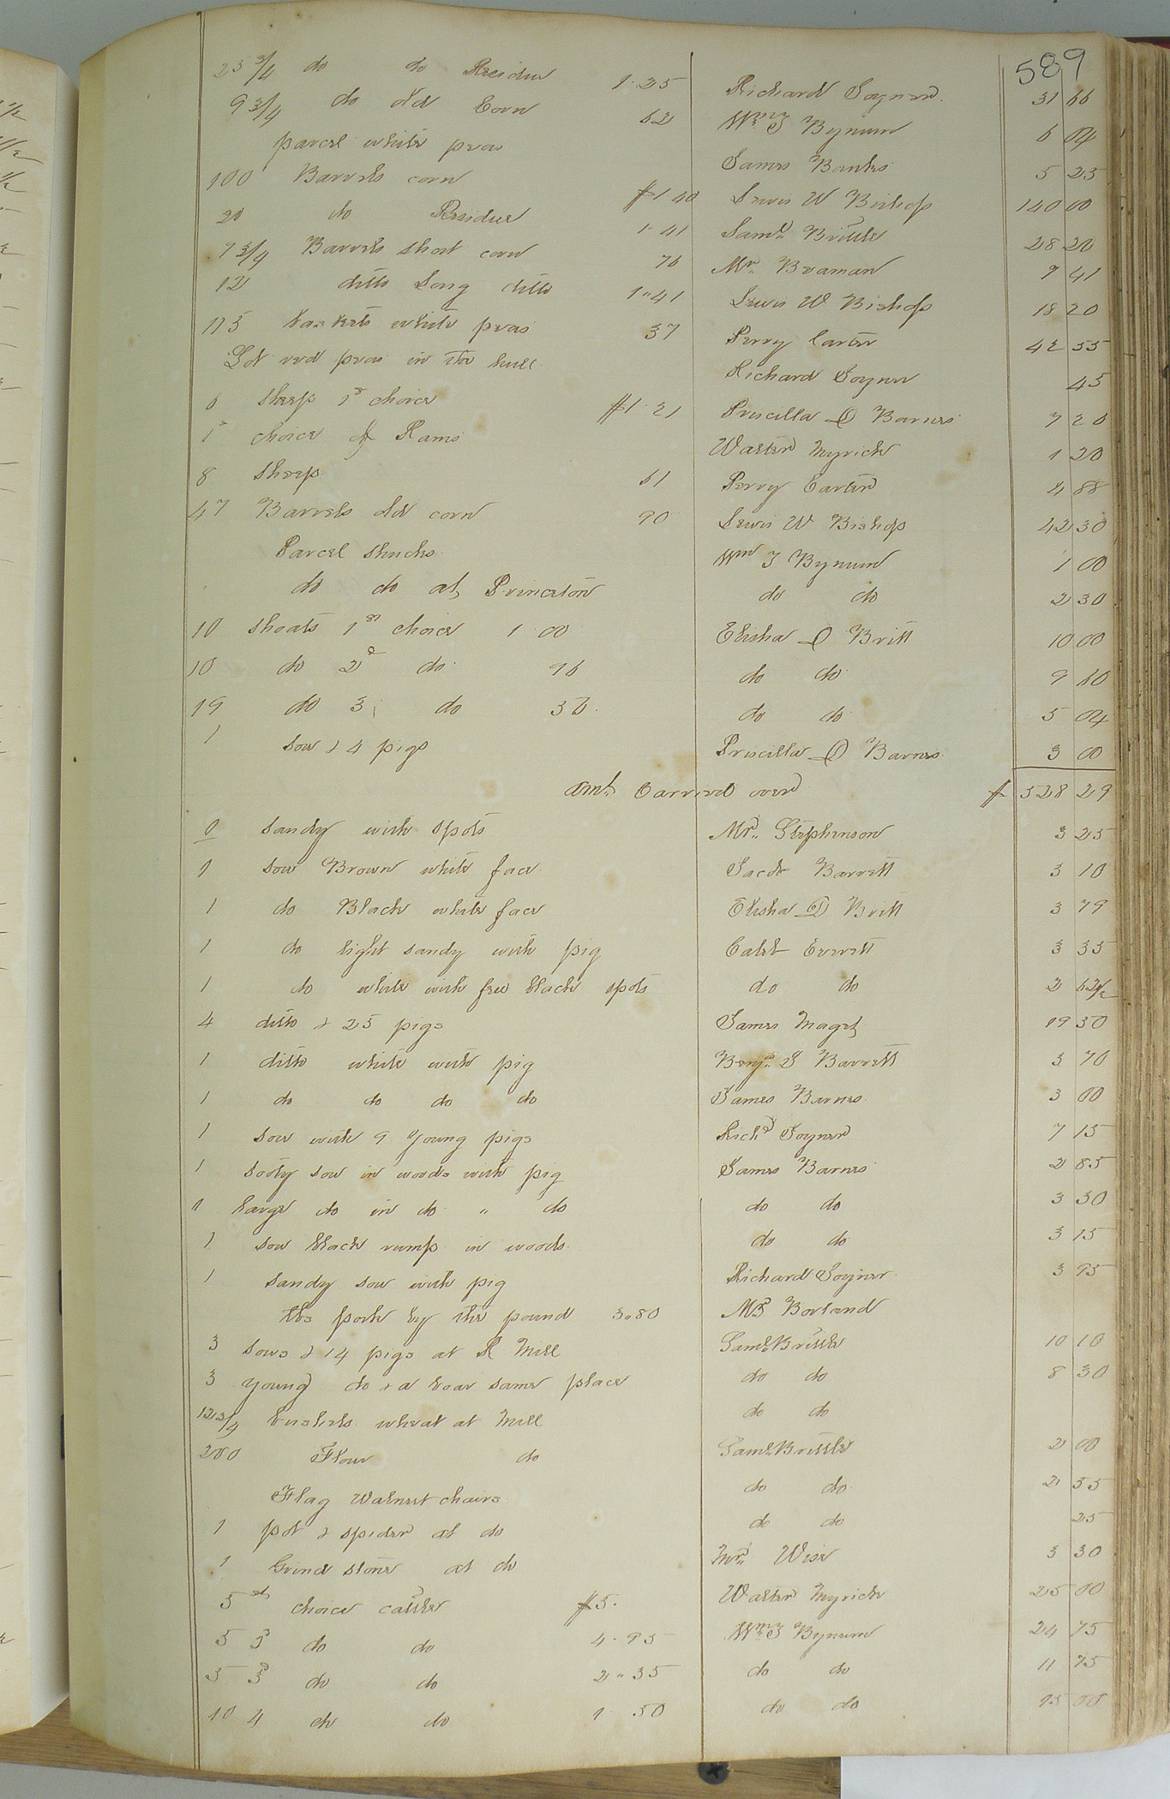 589
23 3/4 do do Residue 1.35 Richard Joyner 31 66
9 3/4 do old Corn 62 Wm J Bynum 6 04
parcel white peas James Banks 5 25
100 Barrels corn $1 40 Lewis W Bishop 140 00
20 do Residue 1.41 Saml Brittle 28 20
9 3/4 Barrels short corn 76 Mr. Beaman 7 41
12 ditto Long ditto 1.41 Lewis W Bishop 18 20
115 baskets white peas 37 Perry Carter 42 55
Lot red peas in the hull Richard Joyner 45
6 sheep 1st choice $1.21 Priscilla D Barnes 7 20
1st choice of Rams Walter Myrick 1 20
8 sheep 61 Perry Carter 4 88
47 Barrels old corn 90 Lewis W Bishop 42 30
Parcel shucks Wm J Bynum 1 00
do do at Princeton do do 2 30
10 shoats 1st choice 1 00 Elisha D Britt 10 00
10 do 2d do 96 do do 9 60
19 do 3 do 36 do do 5 04
1 sow & 4 pigs Priscilla D Barnes 3 00
Amt. Carried over $ 528 29
1 sandy with spots Mr. Stephenson 3 25
1 sow Brown white face Jacob Barrett 3 10
1 do Black white face Elisha D Britt 3 79
1 do light sandy with pig Caleb Everett 3 35
1 do white with few black spots do do 2 62 1/2
4 ditto & 25 pigs James Maget 19 50
1 ditto white with pig Benja. J Barrett 3 70
1 do do do do James Barnes 3 00
1 sow with 9 young pigs Richd Joyner 7 15
1 sooty sow in woods with pig James Barnes 2 85
1 Large do in do " do do do 3 30
1 sow black rump in woods do do 3 15
1 sandy sow with pig Richard Joyner 3 95
lbs pork by the pound 3.80 Mr Borland
3 sows & 14 pigs at R Mill Saml Brittle 10 10
3 young do & a boar same place do do 8 30
12 3/4 bushels wheat at Mill do do
280 Flour do Saml Brittle 2 00
Flag Walnut chairs do do 2 55
1 pot & spider at do do do 25
1 Grind stone at do Mr. Wise 3 30
5 st choice cattle $5. Walter Myrick 25 00
5 2d do do 4.95 Wm J Bynum 24 75
5 3d do do 2.35 do do 11 75
10 4 do do 1 50 do do 15 00